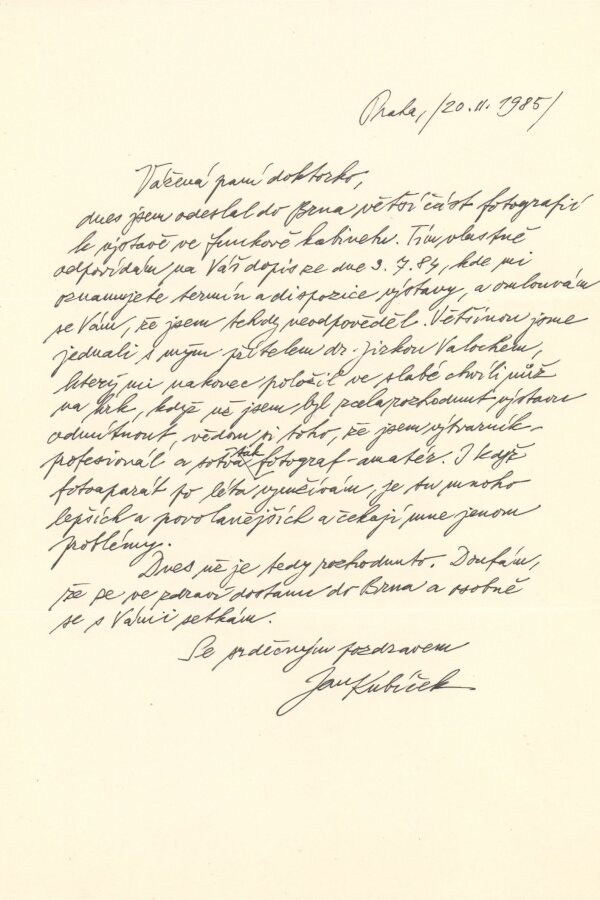 Praha, /20.II. 1985/
Vážená paní doktorko,
dnes jsem odeslal do Brna větší část fotografií
k výstavě ve Funkově kabinetu. Tím vlastně
odpovídám na Váš dopis ze dne 3.7.84, kde mi
oznamujete termín a dispozice výstavy, a omlouvám
se Vám, že jsem tehdy neodpověděl. Většinou jsme
jednali s mým přítelem dr. Jirkou Valochem,
který mi nakonec položil ve slabé chvíli nůž
na krk, když už jsem byl zcela rozhodnut výstavu
odmítnout, vědom si toho, že jsem výtvarník-
profesionál a sotva tak fotograf-amatér. I když
fotoaparát po léta vyučívám, je tu mnoho
lepších a povolanějších a čekají mne jenom
problémy.
Dnes už je tedy rozhodnuto. Doufám,
že se ve zdraví dostanu do Brna a osobně
se s Vámi setkám.
Se srdečným pozdravem
Jan Kubíček